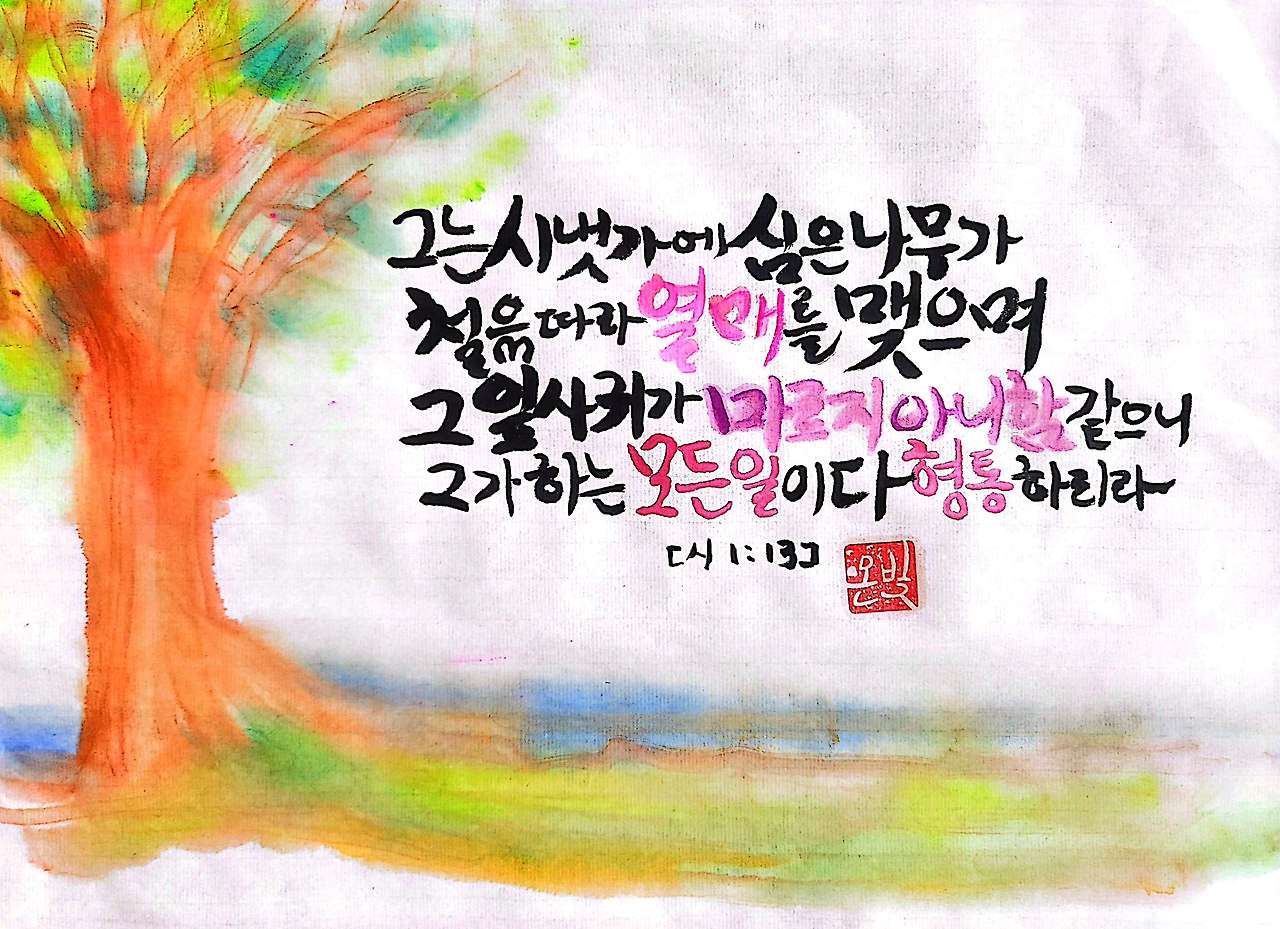 그는 시냇가에 심은 나무가
철을 따라 열매를 맺으며
그 잎사귀가 마르지 아니함 같으니
그가 하는 모든 일이 다 형통하리라
[시 1:13]
온빛